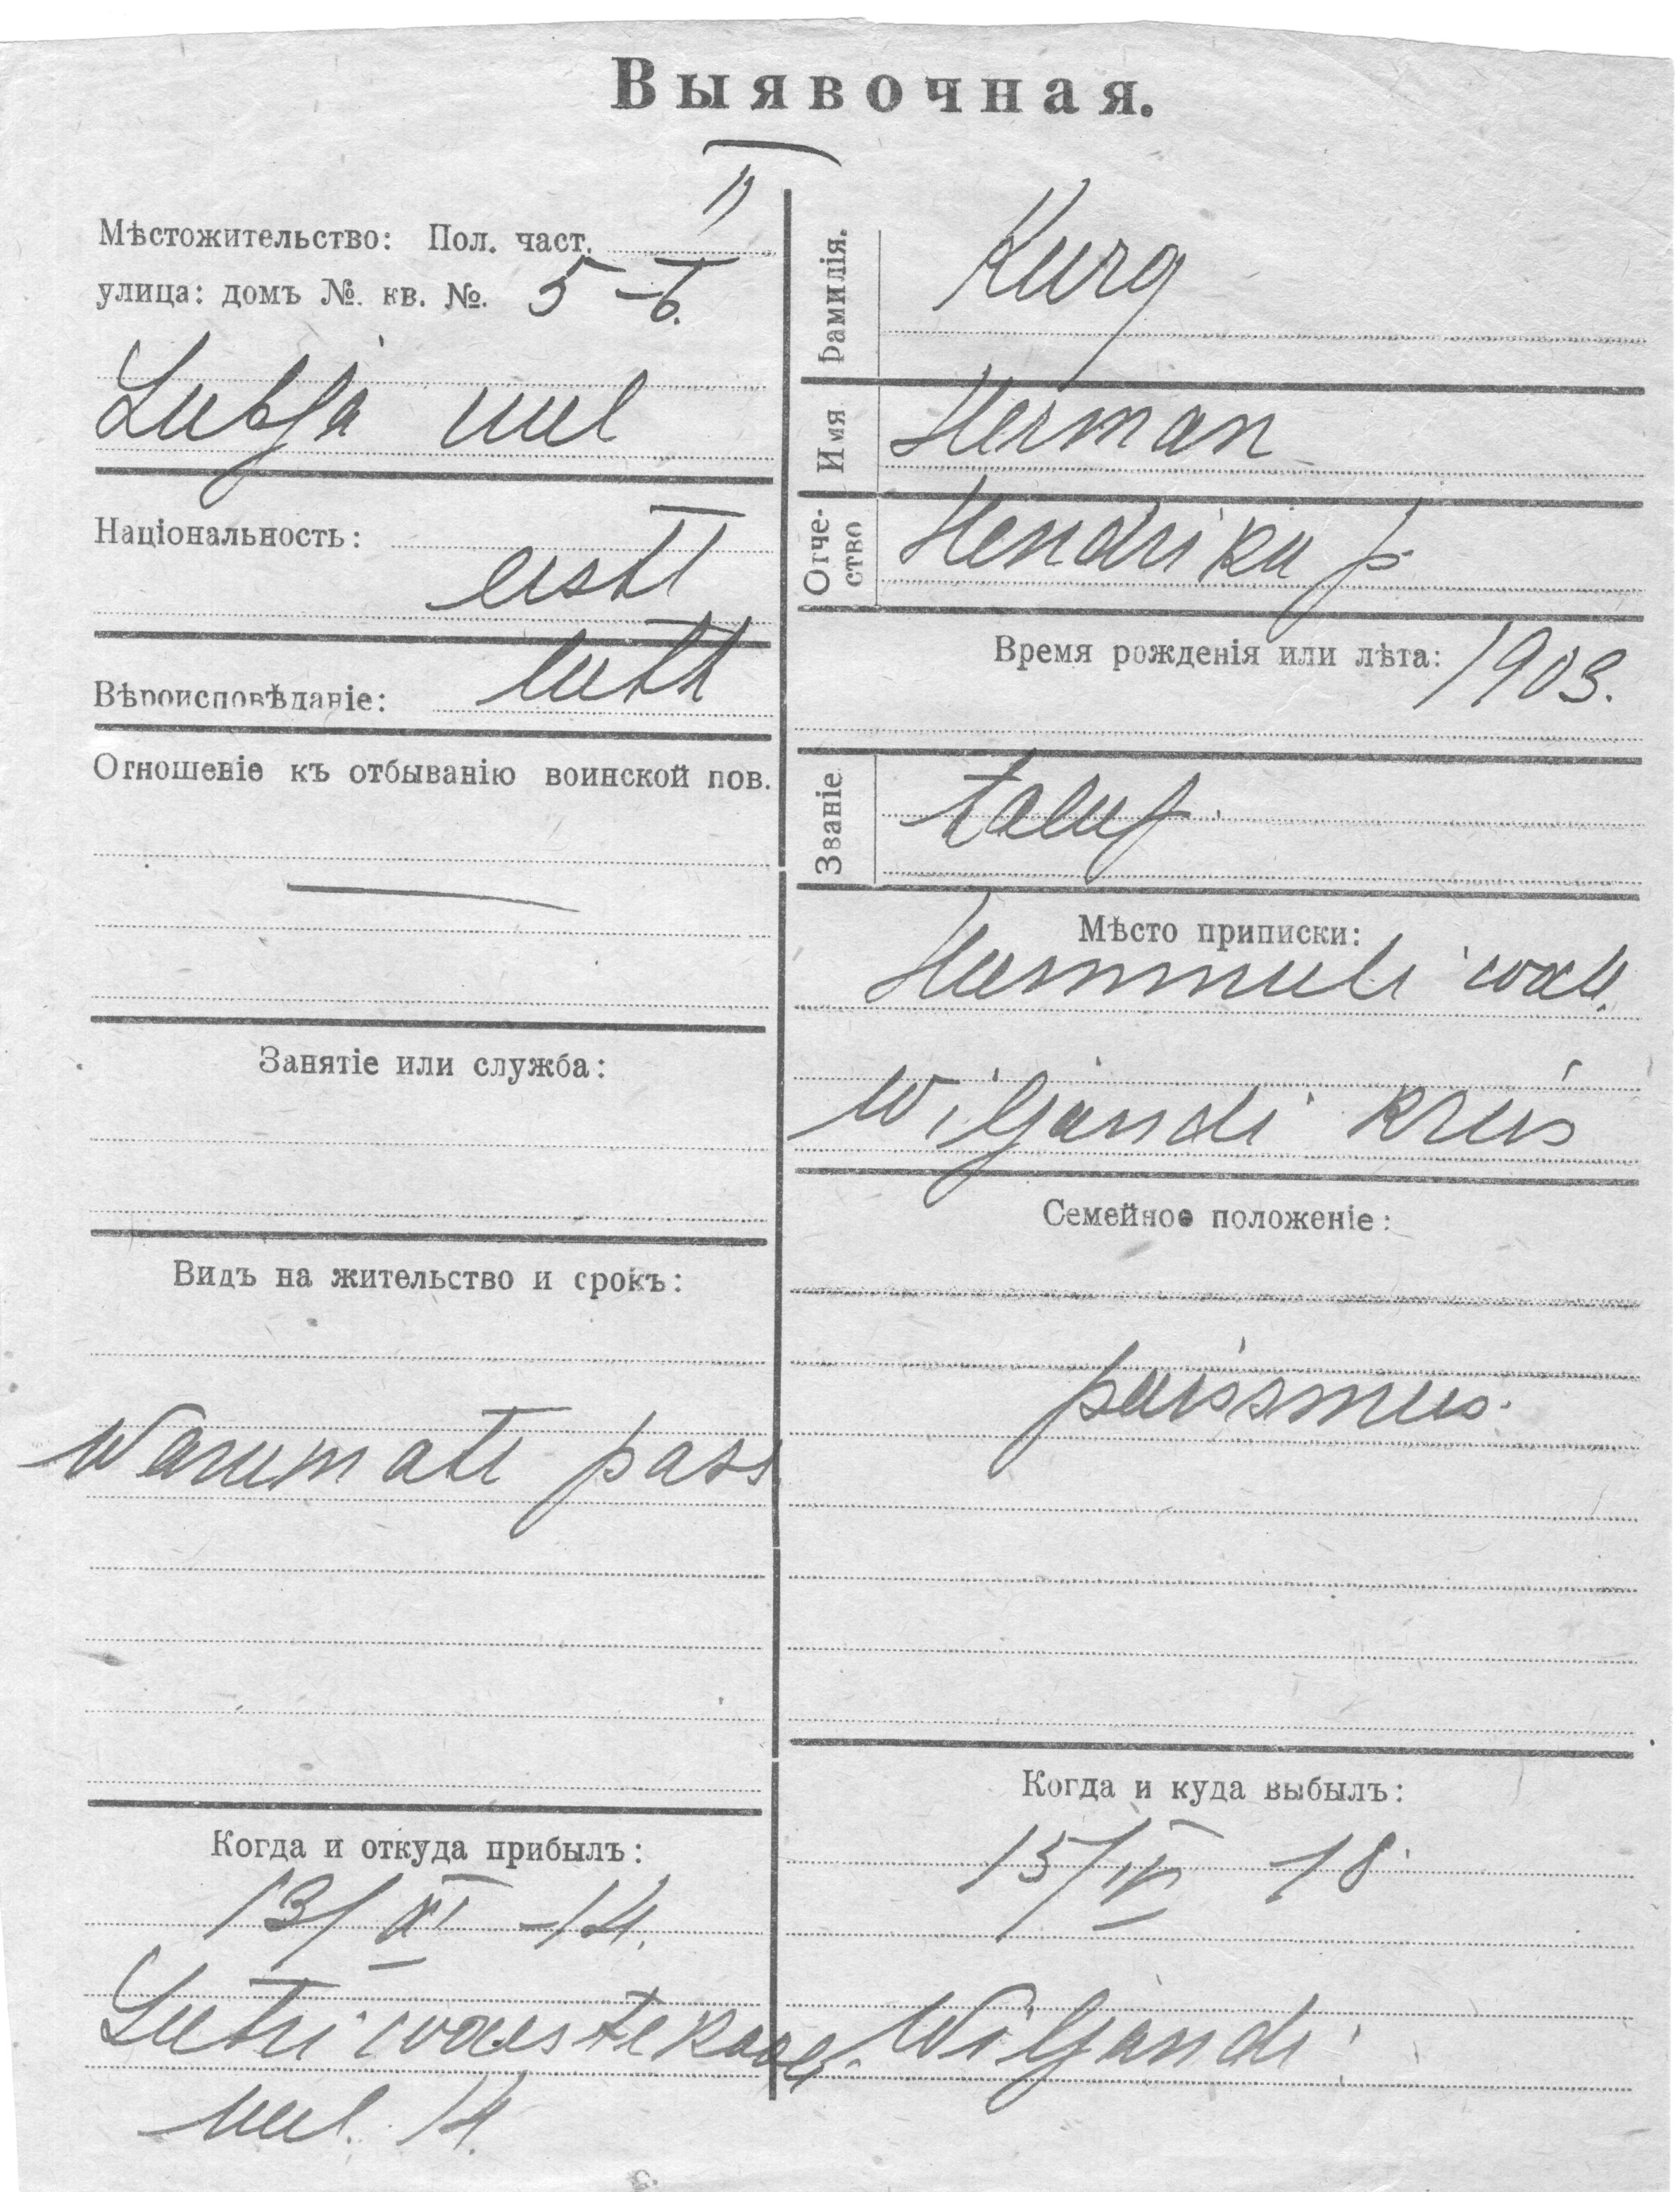 Выявочная.
Мѣстожительство: Пол. част. II
улица: домъ №. кв. №. 5 – 6.
Lubja uul
Національность:
eesti
Вѣроисповѣданіе: luth
Отношеніе къ отбыванію воинской пов.
Занятіе или служба:
Видъ на жительство и срокъ:
Wanemate pass
Когда и откуда прибылъ:
13/XI – 14.
uul. 14.
Фамилія. Kurg
Имя Herman
Отче-
ство
Hendriku p
Время рожденія или лѣта: 1903.
Званіе talup.
Мѣсто приписки:
Hummuli wald.
Wiljandi kreis
Семейное положеніе:
poissmees.
Когда и куда выбылъ:
15/IV 18.
Wiljandi